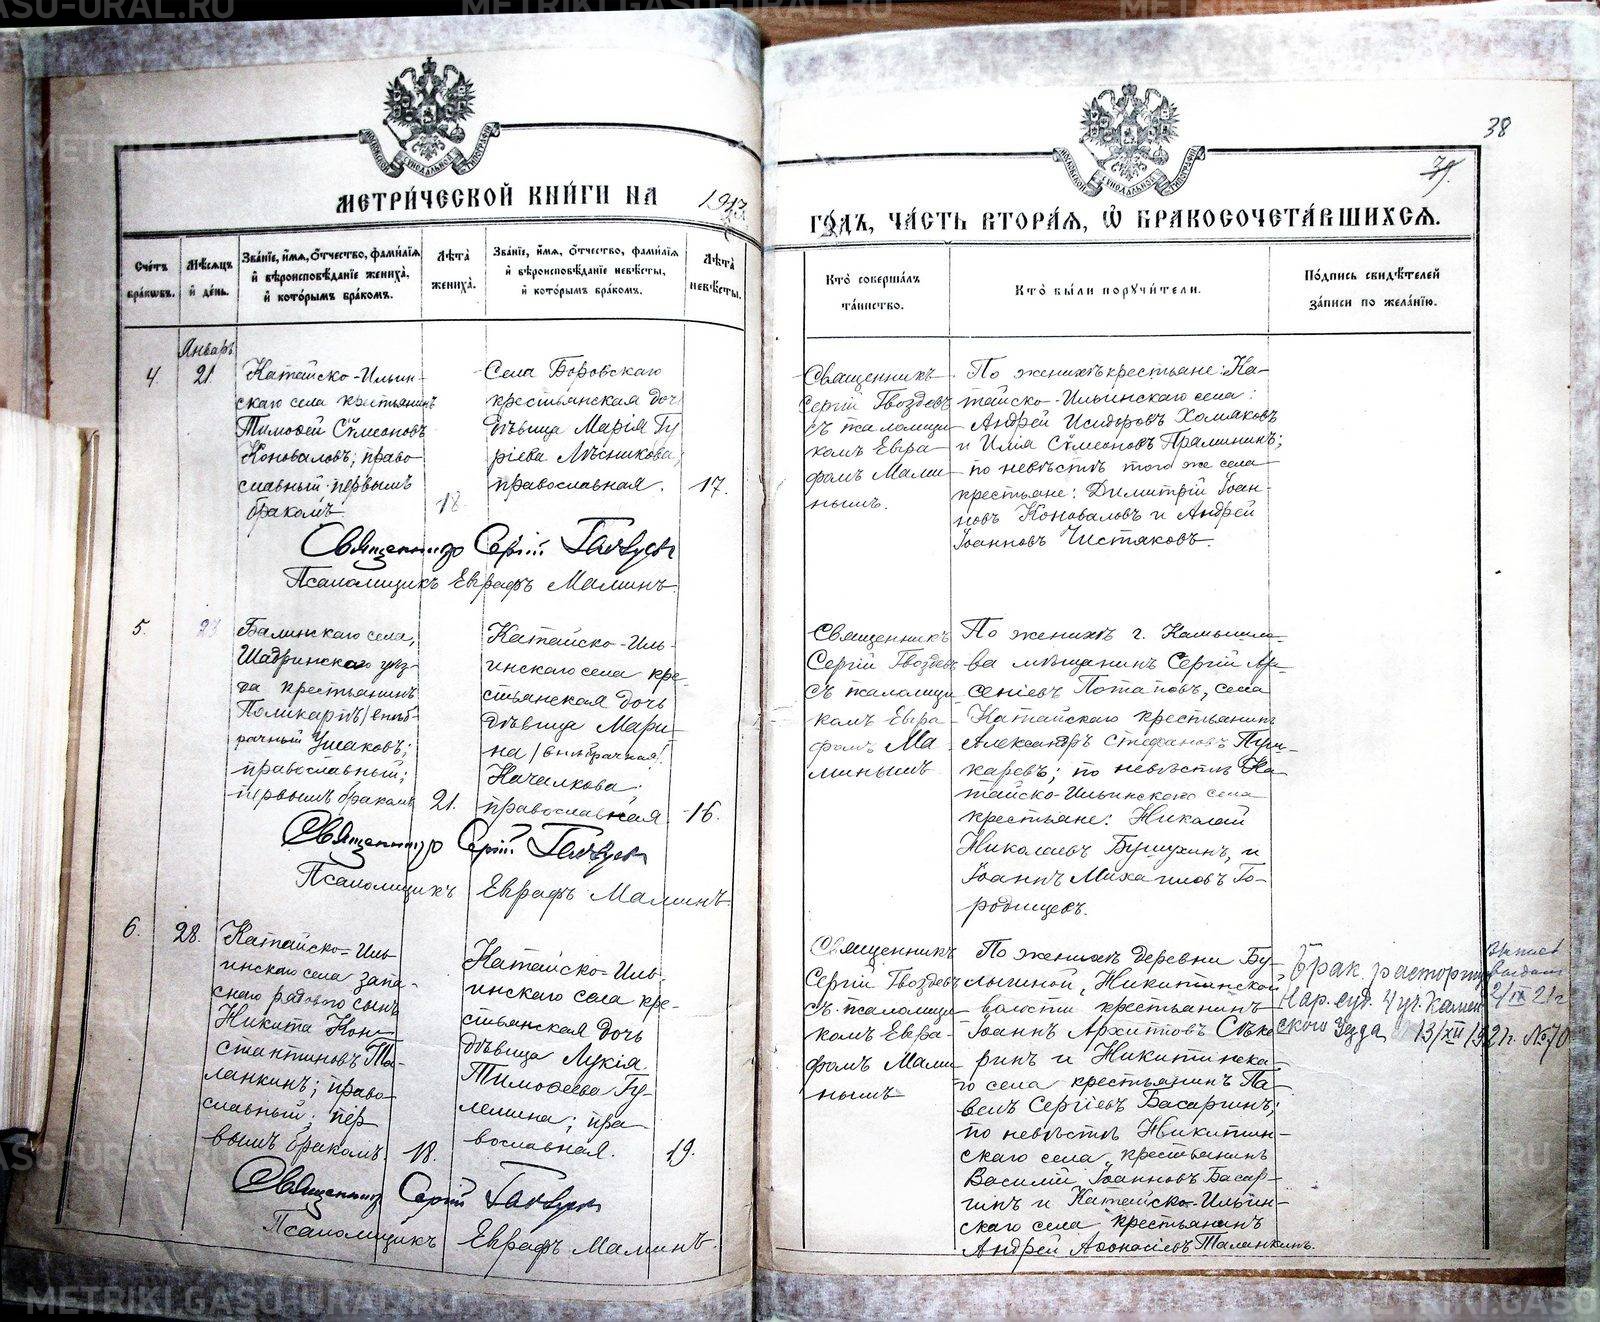 38
39.
МОСКОВСКОЙ СУНОДАЛЬНОЙ ТИПОГРАФІИ
МОСКОВСКОЙ СУНОДАЛЬНОЙ ТИПОГРАФІИ
МЕТРИ́ЧЕСКОЙ КНИ́ГИ НА 1913
ГО́ДЪ, ЧА́СТЬ ВТОРА́Я, Ѡ БРАКОСОЧЕТА́ВШИХСЯ.
Сче́тъ бра́кѡвъ.
Мѣ́сяцъ и҆ де́нь.
Зва́нїе, и҆́мя, ѻ҆́тчество, фами́лїя и҆ вѣроисповѣ́данїе жениха̀, и҆ кото́рымъ бра́комъ.
Лѣ́та жениха̀.
Зва́нїе, и҆́мя, ѻ҆́тчество, фами́лїя и҆ вѣроисповѣ́данїе невѣ́сты, и҆ кото́рымъ бра́комъ.
Лѣ́та невѣ́сты.
Кто̀ соверша́лъ та́инство.
Кто̀ бы́ли поручи́тели.
По́дпись свидѣ́телей за́писи по жела́нїю.
Январь
4.
21.
Катайско-Ильин-
скаго села крестьянинъ
Тимоѳей Сѵмеоновъ
Коноваловъ; право-
славный первымъ
бракомъ
18
Села Боровскаго
крестьянская доч
дѣвица Марія Гу
ріева Лѣсникова;
православная.
17.
Священникъ
Сергій Гвоздевъ
съ псаломщи
комъ Евгра
фомъ Мами
нымъ.
По женихѣ крестьяне: Ка-
тайско-Ильинскаго села:
Андрей Исидоровъ Хомяковъ
и Илія Сѵмеоновъ Пралинин;
по невѣстѣ того же села
крестьяне: Димитрій Іоан-
новъ Коноваловъ и Андрей
Іоанновъ Чистяковъ.
Священникъ Сергій Гвоздевъ
Псаломщикъ Евграфъ Маминъ.
5.
23
Балинскаго села,
Шадринскаго уѣз-
да крестьянинъ
Поликарпъ /внѣб-
рачный/ Ушаковъ;
православный;
первымъ бракомъ
21.
Катайско-Иль-
инскаго села кре-
стьянская дочь
дѣвица Мари-
на /внѣбрачная/
Качалкова;
православная
16.
Священникъ
Сергій Гвоздевъ
съ псаломщи
комъ Евгра
фомъ Ма
минымъ
По женихѣ г. Камышло-
ва мѣщанинъ Сергій Ар-
сеніевъ Потаповъ, села
Катайскаго крестьянинъ
Александръ Стефановъ Пуш-
каревъ; по невѣстѣ Ка-
тайско-Ильинскаго села
крестьяне: Николай
Николаевъ Бушухинъ, и
Іоаннъ Михаиловъ Го-
родищевъ.
Священникъ Сергій Гвоздевъ
Псаломщикъ Евграфъ Маминъ.
6.
28.
Катайско-Иль-
инскаго села запа-
снаго рядового сынъ
Никита Кон-
стантиновъ Та-
ланкинъ; право-
славный; пер
вымъ бракомъ
18.
Катайско-Иль-
инскаго села кре-
стьянская дочь
дѣвица Лукія
Тимоѳеева Гу-
лешина; пра-
вославная.
19.
Священникъ
Сергій Гвоздевъ
съ псаломщи
комъ Евгра-
фомъ Мами
нымъ
По женихѣ деревни Бу-
лыгиной, Никитинской
волости крестьянинъ
Іоаннъ Архиповъ Сѣке
ринъ и Никитинска-
го села крестьянинъ Па-
велъ Сергіевъ Басаргинъ;
по невѣстѣ Никитин-
скаго села крестьянинъ
Василій Іоанновъ Басар-
гинъ и Катайско-Ильин-
скаго села крестьянинъ
Андрей Аѳонасіевъ Таланкинъ.
Брак расторгнут
Нар. суд. 4 уч. Камы
ского Уезда 13/XII 1921 г. №70
2/IX 21 г
Священникъ Сергій Гвоздевъ
Псаломщикъ Евграфъ Маминъ.
METRIKI.GASO-URAL.RU